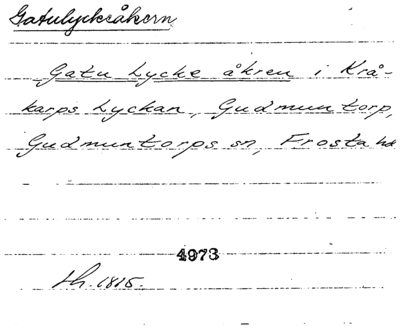 Gatulyckråkern
Gatu Lycke åkren i Krå-
karps Lyckan, Gudmuntorp,
Gudmuntorps sn, Frosta hd
4973
Sh. 1815.